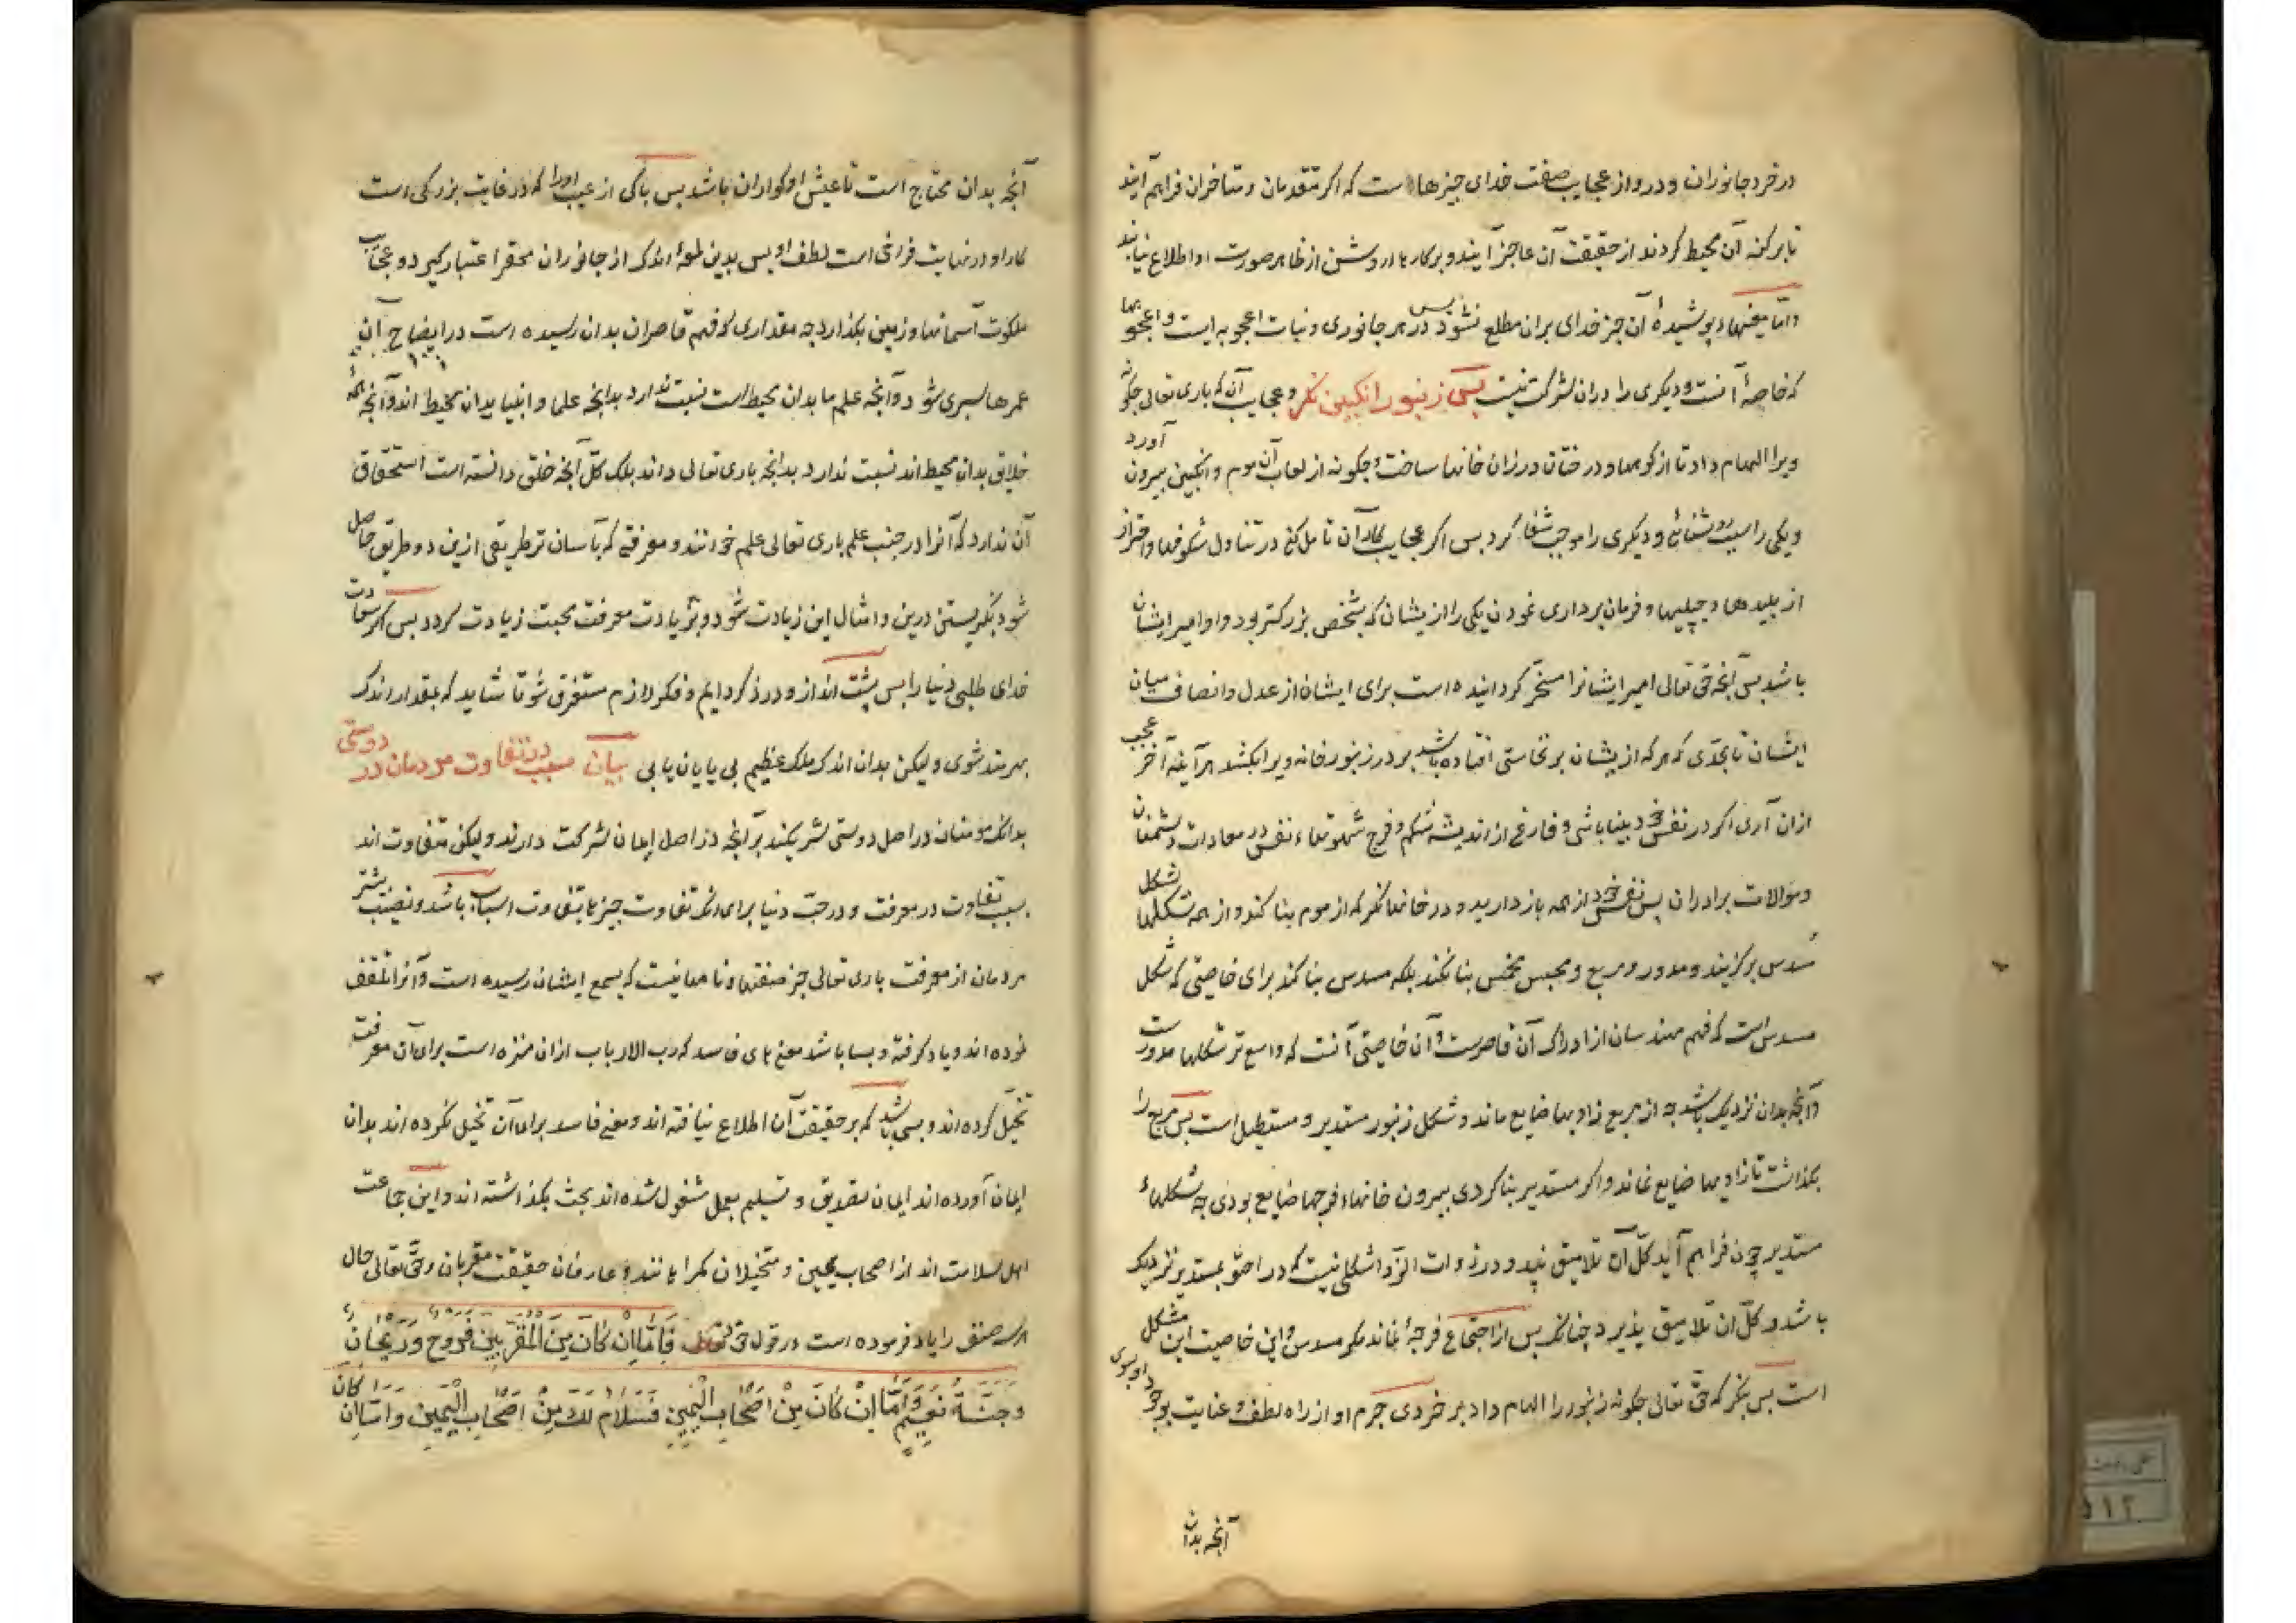 در خرد جانوران و درو از عجایب صفت خدای چیزها است که اکر متقدمان و متاخران فراهم آیند
تا بر کنه آن محیط کردند از حقیقت آن عاجز آیند و بر کارهاء روشن از ظاهر صورت او اطلاع نیابند
و اما پوشیدهٔ آن جز خدای بران مطلع نشود پس در هر جانوری و نبات اعجوبه ایست و اعجوبها
که خاصهٔ آنست و دیکری را دران شرکت نیست پس زنبور انکبین نکر و عجایب آن که باری تعالی چکونه
ویرا الهام داد تا از کوهها و درختان در زان خانها ساخت و چکونه از لعاب آن موم و انکبین بیرون آورد
و یکی را سبب روشنائی و دیکری را موجب شفا کرد پس اکر عجایب کار آن تامل کنی در تناول شکوفها و احتراز
از پلیدها و فرمان برداری نمودن یکی را ازیشان که بشخص بزرکتر بود و او امیر ایشان
باشد پس آنچه حق تعالی امیر ایشانرا مسخر کردانیده است برای ایشان از عدل و انصاف میان
ایشان تا بحدی که هر که ازیشان بر نجاستی افتاده باشد بر در زنبورخانه ویرا بکشد هرآینه آخر عجب
ازان آری اکر در نفس خود بینا باشی و فارغ از اندیشه شکم و فرج و شهوتهاء نفس در معادات دشمنان
و موالات برادران پس نفس خود از همه باز دارید و در خانها نکر که از موم بنا کند و از همه شکلها شکل
مسدس برکزیند و مدور و مربع و مخمس بنا نکند بلکه مسدس بنا کند برای خاصیتی که شکل
مسدس است که فهم مهندسان از ادراک آن قاصرست و آن خاصیتی آنست که واسع تر شکلها مدورست
و آنچه بدان نزدیک باشد چه از مربع زاویها ضایع ماند و شکل زنبور مستدیر و مستطیل است پس مربع را
بکذاشت تا زاویها ضایع نماند و اکر مستدیر بنا کردی بیرون خانها فرجها ضایع بودی چه شکلهاء
مستدیر چون فراهم آید کل آن تلاصق نپذیرد و در ذوات الزوایا شکلی نیست که در احتوا بمستدیر نزدیک
باشد و کل ان تلاصق پذیرد چنانکه پس از اجتماع فرجهٔ نماند مکر مسدس و این خاصیت این شکل
است پس بنکر که حق تعالی چکونه زنبور را الهام داد بر خردی جرم او از راه لطف و عنایت بوجود او بسوی
آنچه بدان
آنچه بدان محتاج است تا عیش او کواران باشد پس پاکی از عیب اورا که در غایت بزرکی است
کار او در نهایت فراخی است لطف او پس بدین لمعهٔ اندک از جانوران محقر اعتبار کیر و عجایب
ملکوت آسمانها و زمین بکذار چه مقداری که فهم قاصران بدان رسیده است در ایضاح آن
عمرها سپری شود و آنچه علم ما بدان محیط است نسبت ندارد بدانچه علما و انبیا بدان محیط اند و آنچه همهٔ
خلایق بدان محیط اند نسبت ندارد بدانچه باری تعالی داند بلک کل آنچه خلق دانسته است استحقاق
آن ندارد که آنرا در جنب علم باری تعالی علم خوانند و معرفتی که بآسان تر طریقی ازین دو طریق حاصل
شود بنکریستن درین و امثال این زیادت شود و بزیادت معرفت محبت زیادت کردد پس اکر سعادت
خدای طلبی دنیا را پس پشت انداز و در ذکر دایم و فکر لازم مستغرق شو تا شاید که بمقدار اندک
بهرمند شوی و لیکن بدان اندک ملک عظیم بی پایان یابی بیان سبب در تفاوت مردمان در دوستی
بدانک مومنان در اصل دوستی شریکند برآنچه در اصل ایمان شرکت دارند و لیکن متفاوت اند
بسبب تفاوت در معرفت و در حب دنیا برای آنک تفاوت چیزها بتفاوت اسباب باشد و نصیب بیشتر
مردمان از معرفت باری تعالی جز صفتها و نامها نیست که بسمع ایشان رسیده است و آنرا تلقف
نموده اند و یاد کرفته و بسا باشد معنی های فاسد که رب الارباب ازان منزه است برای آن معرفت
تخیل کرده اند و بسی باشد که بر حقیقت آن اطلاع نیافته اند و معنی فاسد برای آن تخیل نکرده اند بدان
ایمان آورده اند ایمان تصدیق و تسلیم بعمل مشغول شده اند بحث بکذاشته اند و این جماعت
اهل سلامت اند از اصحاب یمین و متخیلان کمراهانند و عارفان حقیقت مقربان و حق تعالی حال
هر سه صنف را یاد فرموده است در قول حق تعالی فَاَمَّا اِنْ كَانَ مِنَ الْمُقَرَّبِينَ فَرَوْحٌ وَرَيْحَانٌ
وَجَنَّةُ نَعِيمٍ وَاَمَّا اِنْ كَانَ مِنْ اَصْحَابِ الْيَمِينِ فَسَلَامٌ لَكَ مِنْ اَصْحَابِ الْيَمِينِ وَاَمَّا اِنْ كَانَ